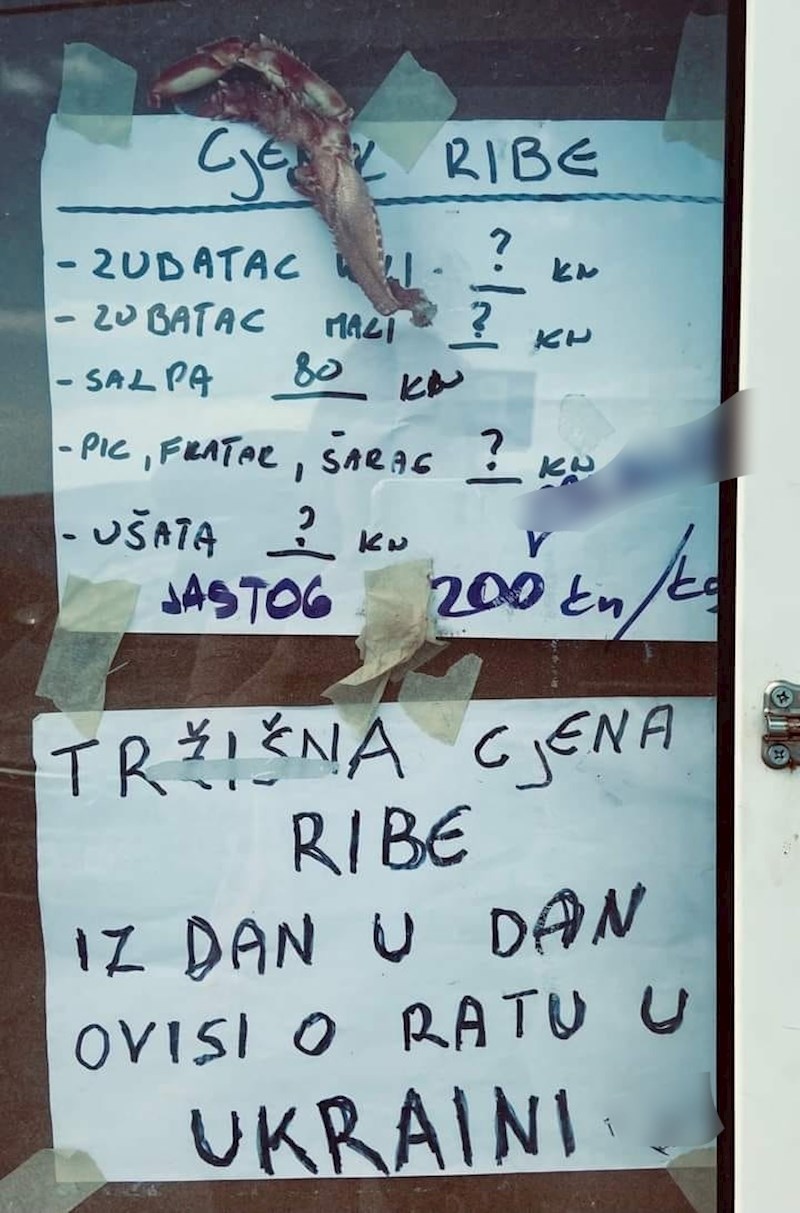 RIBE
- ZUDATAC ? KN
- ZUBATAC MALI ? KN
- SALPA 80 KN
- PIC, FRATAR, ŠARAG ? KN
- UŠATA ? KN
JASTOG 200 kn/kg
TRŽIŠNA CJENA
RIBE
IZ DAN U DAN
OVISI O RATU U
UKRAINI